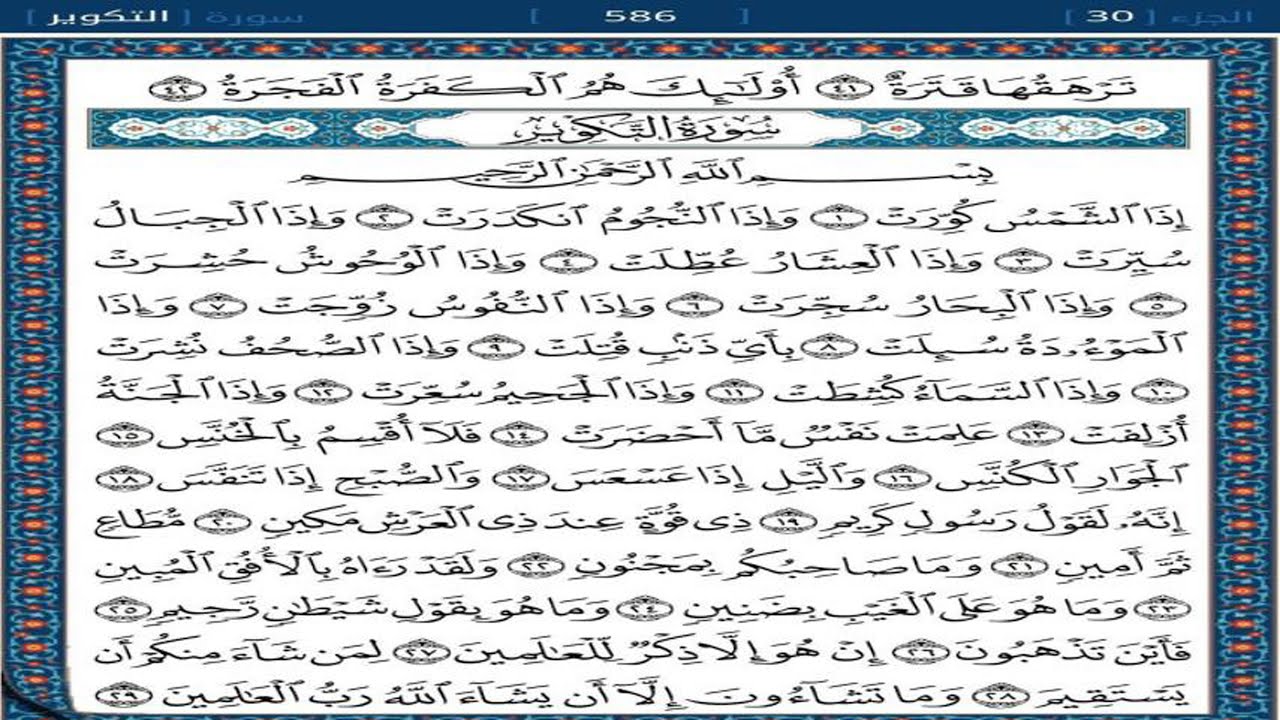 الجزء [ 30 ] [ 586 ] سورة [ التكوير ]
تَرْهَقُهَا قَتَرَةٌ ٤١ أُو۟لَـٰٓئِكَ هُمُ ٱلْكَفَرَةُ ٱلْفَجَرَةُ ٤٢
سُورَةُ التَّكْوِيرِ
بِسْمِ ٱللَّهِ ٱلرَّحْمَـٰنِ ٱلرَّحِيمِ
إِذَا ٱلشَّمْسُ كُوِّرَتْ ١ وَإِذَا ٱلنُّجُومُ ٱنكَدَرَتْ ٢ وَإِذَا ٱلْجِبَالُ
سُيِّرَتْ ٣ وَإِذَا ٱلْعِشَارُ عُطِّلَتْ ٤ وَإِذَا ٱلْوُحُوشُ حُشِرَتْ
٥ وَإِذَا ٱلْبِحَارُ سُجِّرَتْ ٦ وَإِذَا ٱلنُّفُوسُ زُوِّجَتْ ٧ وَإِذَا
ٱلْمَوْءُۥدَةُ سُئِلَتْ ٨ بِأَىِّ ذَنۢبٍ قُتِلَتْ ٩ وَإِذَا ٱلصُّحُفُ نُشِرَتْ
١٠ وَإِذَا ٱلسَّمَآءُ كُشِطَتْ ١١ وَإِذَا ٱلْجَحِيمُ سُعِّرَتْ ١٢ وَإِذَا ٱلْجَنَّةُ
أُزْلِفَتْ ١٣ عَلِمَتْ نَفْسٌ مَّآ أَحْضَرَتْ ١٤ فَلَآ أُقْسِمُ بِٱلْخُنَّسِ ١٥
ٱلْجَوَارِ ٱلْكُنَّسِ ١٦ وَٱلَّيْلِ إِذَا عَسْعَسَ ١٧ وَٱلصُّبْحِ إِذَا تَنَفَّسَ ١٨
إِنَّهُۥ لَقَوْلُ رَسُولٍ كَرِيمٍ ١٩ ذِى قُوَّةٍ عِندَ ذِى ٱلْعَرْشِ مَكِينٍ ٢٠ مُّطَاعٍ
ثَمَّ أَمِينٍ ٢١ وَمَا صَاحِبُكُم بِمَجْنُونٍ ٢٢ وَلَقَدْ رَءَاهُ بِٱلْأُفُقِ ٱلْمُبِينِ
٢٣ وَمَا هُوَ عَلَى ٱلْغَيْبِ بِضَنِينٍ ٢٤ وَمَا هُوَ بِقَوْلِ شَيْطَـٰنٍ رَّجِيمٍ ٢٥
فَأَيْنَ تَذْهَبُونَ ٢٦ إِنْ هُوَ إِلَّا ذِكْرٌ لِّلْعَـٰلَمِينَ ٢٧ لِمَن شَآءَ مِنكُمْ أَن
يَسْتَقِيمَ ٢٨ وَمَا تَشَآءُونَ إِلَّآ أَن يَشَآءَ ٱللَّهُ رَبُّ ٱلْعَـٰلَمِينَ ٢٩